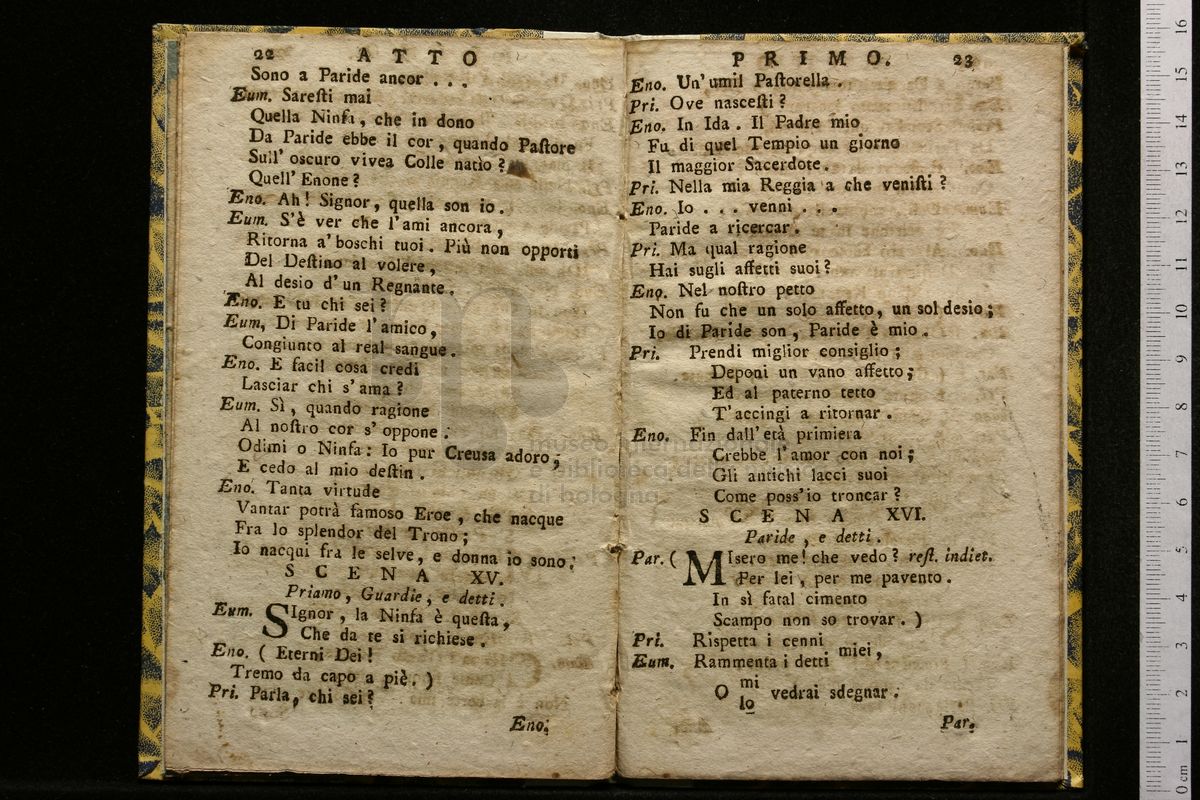 22 ATTO
Sono a Paride ancor . . .
Eum. Saresti mai
Quella Ninfa, che in dono
Da Paride ebbe il cor, quando Pastore
Sull' oscuro vivea Colle natìo?
Quell' Enone?
Eno. Ah! Signor, quella son io.
Eum. S'è ver che l'ami ancora,
Ritorna a' boschi tuoi. Più non opporti
Del Destino al volere,
Al desio d'un Regnante.
Eno. E tu chi sei?
Eum, Di Paride l'amico,
Congiunto al real sangue.
Eno. E facil cosa credi
Lasciar chi s'ama?
Eum. Sì, quando ragione
Al nostro cor s'oppone.
Odimi o Ninfa: Io pur Creusa adoro;
E cedo al mio destin.
Eno. Tanta virtude
Vantar potrà famoso Eroe, che nacque
Fra lo splendor del Trono;
Io nacqui fra le selve, e donna io sono.
SCENA XV.
Priamo, Guardie, e detti.
Eum. SIgnor, la Ninfa è questa,
Che da te si richiese.
Eno. ( Eterni Dei!
Tremo da capo a piè. )
Pri. Parla, chi sei?
Eno.
PRIMO. 23
Eno. Un'umil Pastorella.
Pri. Ove nascesti?
Eno. In Ida. Il Padre mio
Fu di quel Tempio un giorno
Il maggior Sacerdote.
Pri. Nella mia Reggia a che venisti?
Eno. Io . . . venni . . .
Paride a ricercar.
Pri. Ma qual ragione
Hai sugli affetti suoi?
Eno. Nel nostro petto
Non fu che un solo affetto, un sol desio;
Io di Paride son, Paride è mio.
Pri. Prendi miglior consiglio;
Deponi un vano affetto;
Ed al paterno tetto
T'accingi a ritornar.
Eno. Fin dall'età primiera
Crebbe l'amor con noi;
Gli antichi lacci suoi
Come poss'io troncar?
SCENA XVI.
Paride, e detti.
Par. ( MIsero me! che vedo? rest. indiet.
Per lei, per me pavento.
In sì fatal cimento
Scampo non so trovar. )
Pri. Rispetta i cenni
miei,
Eum. Rammenta i detti
mi
O vedrai sdegnar.
lo
Par.
museo internazionale
biblioteca della
di bologna
16
15
14
13
12
11
10
9
8
7
6
5
4
3
2
1
0 cm